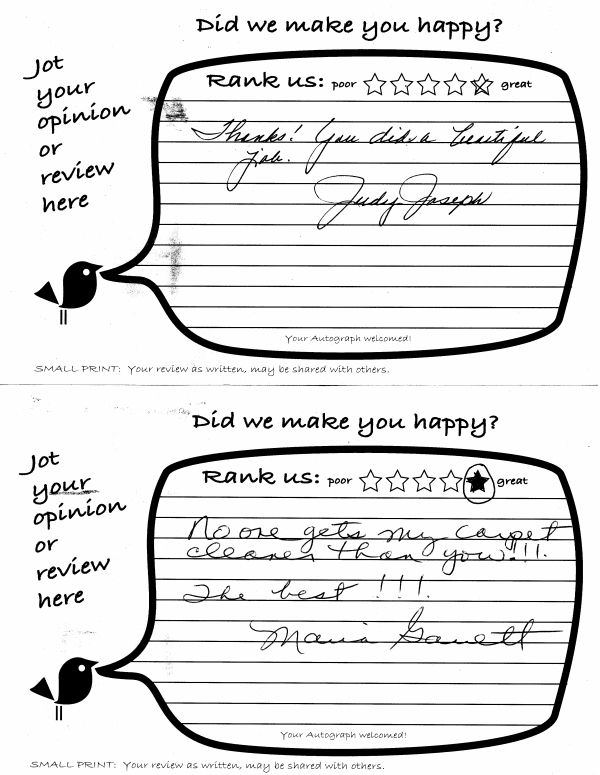 Did we make you happy?
Jot
your
opinion
or
review
here
Rank us: poor great
Thanks! You did a beautiful
job.
Judy Joseph
Your Autograph welcomed!
SMALL PRINT: Your review as written, may be shared with others.
Did we make you happy?
Jot
your
opinion
or
review
here
Rank us: poor great
No one gets my carpet
cleaner than you!!!.
The best !!!.
Maria Garrett
Your Autograph welcomed!
SMALL PRINT: Your review as written, may be shared with others.